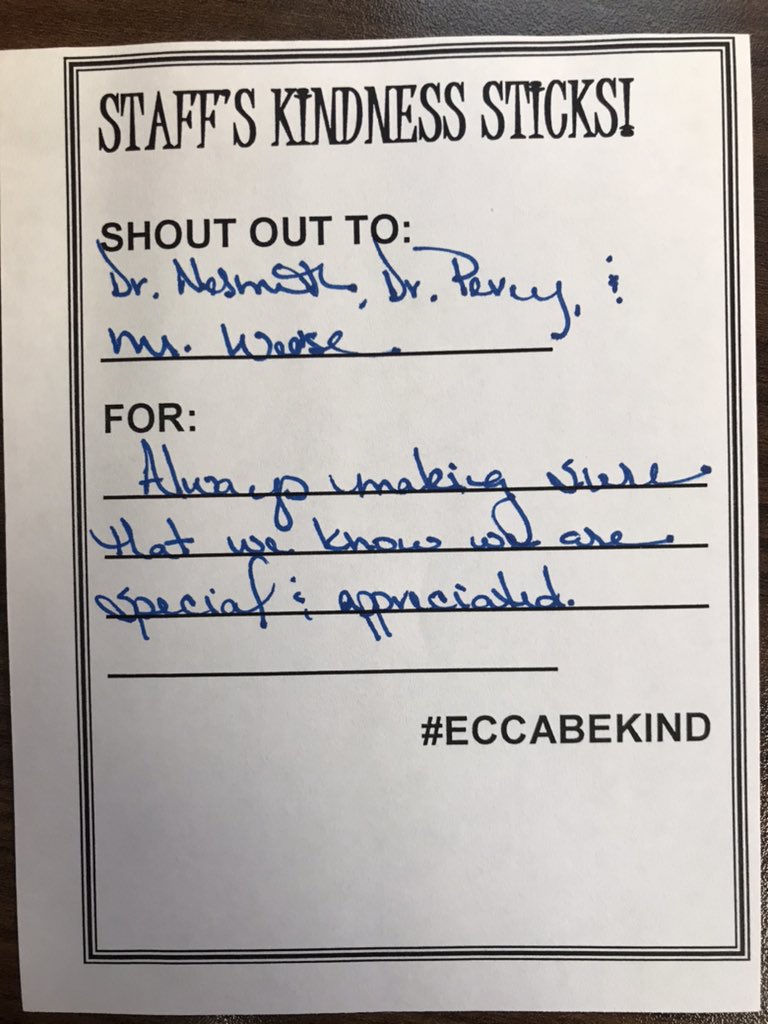 STAFF'S KINDNESS STICKS!
SHOUT OUT TO:
Dr. Nesmith, Dr. Percy, &
Mr. Wease.
FOR:
Always making sure
that we know we are
special & appreciated.
#ECCABEKIND